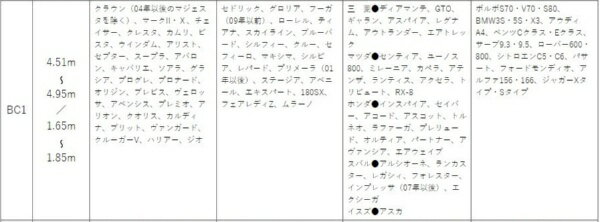 BC1
4.51m
～
4.95m
／
1.65m
～
1.85m
クラウン（04年以後のマジェス
タを除く）、マークⅡ・X、チェ
イサー、クレスタ、カムリ、ビ
スタ、ウィンダム、アリスト、
セプター、スープラ、アバロ
ン、キャバリエ、ソアラ、グラ
シア、プログレ、プロナード、
オリジン、ブレビス、ヴェロッ
サ、アベンシス、プレミオ、ア
リオン、クオリス、カルディ
ナ、ブリット、ヴァンガード、
クルーガーV、ハリアー、ジオ
セドリック、グロリア、フーガ
（09年以前）、ローレル、ティ
アナ、スカイライン、ブルーバ
ード、シルフィー、クルー、セ
フィーロ、マキシマ、シルビ
ア、レパード、プリメーラ（01
年以後）、ステージア、アベニ
ール、エキスパート、180SX、
フェアレディZ、ムラーノ
三　菱●ディアマンテ、GTO、
ギャラン、アスパイア、レグナ
ム、アウトランダー、エアトレッ
ク
マツダ●センティア、ユーノス
800、ミレーニア、カペラ、アテ
ンザ、ランティス、アクセラ、ト
リビュート、RX-8
ホンダ●インスパイア、セイバ
ー、アコード、アスコット、トル
ネオ、ラファーガ、プレリュー
ド、オルティア、パートナー、ア
ヴァンシア、エアウェイブ
スバル●アルシオーネ、ランカス
ター、レガシィ、フォレスター、
インプレッサ（07年以後）、エ
クシーガ
イスズ●アスカ
ボルボS70・V70・S80、
BMW3S・5S・X3、アウディ
A4、ベンツCクラス・Eクラス、
サーブ9.3・9.5、ローバー600・
800、シトロエンC5・C6、パサ
ート、フォードモンディオ、ア
ルファ156・166、ジャガーXタ
イプ・Sタイプ